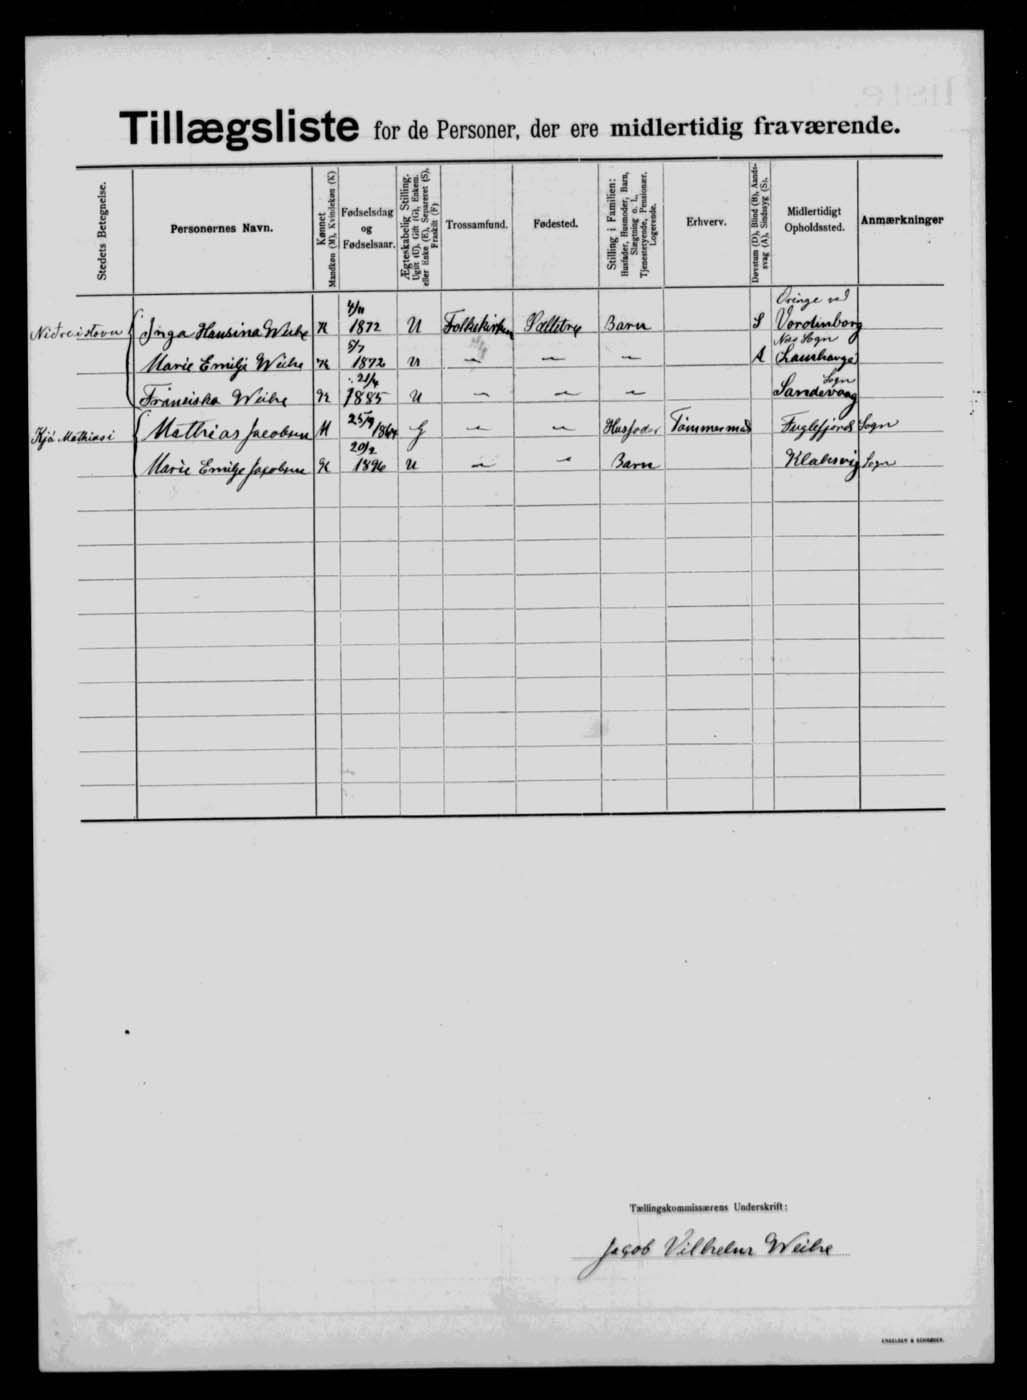 Tillægsliste for de Personer, der ere midlertidig fraværende.
Stedets Betegnelse.
Personernes Navn.
Kønnet
Mandkøn (M), Kvindekøn (K)
Fødselsdag
og
Fødselsaar.
Ægteskabelig Stilling.
Ugift (U), Gift (G), Enkem.
eller Enke (E), Separeret (S),
Fraskilt (F)
Trossamfund.
Fødested.
Stilling i Familien:
Husfader, Husmoder, Barn,
Slægtning o. l.,
Tjenestetyende, Pensionær,
Logerende.
Erhverv.
Døvstum (D), Blind (B), Aands-
svag (A), Sindssyg (S).
Midlertidigt
Opholdssted.
Anmærkninger
Inga Hansina Weihe K 4/11 1872 U Folkekirken Selletræ Barn S Oringe ved Vordinborg
Marie Emilje Weihe K 5/7 1872 U " " " A Næs Sogn
Franciska Weihe K 21/4 1885 U " " " Sandevaag Sogn
Kjá Mathiasi Mathias Jacobsen M 25/9 1864 G " " Husfader Tømmermand Fuglefjords Sogn
Marie Emilje Jacobsen K 20/2 1896 U " " Barn Klaksvig Sogn
Tællingskommissærens Underskrift:
Jacob Vilhelm Weihe
ENGELSEN & SCHRØDER.